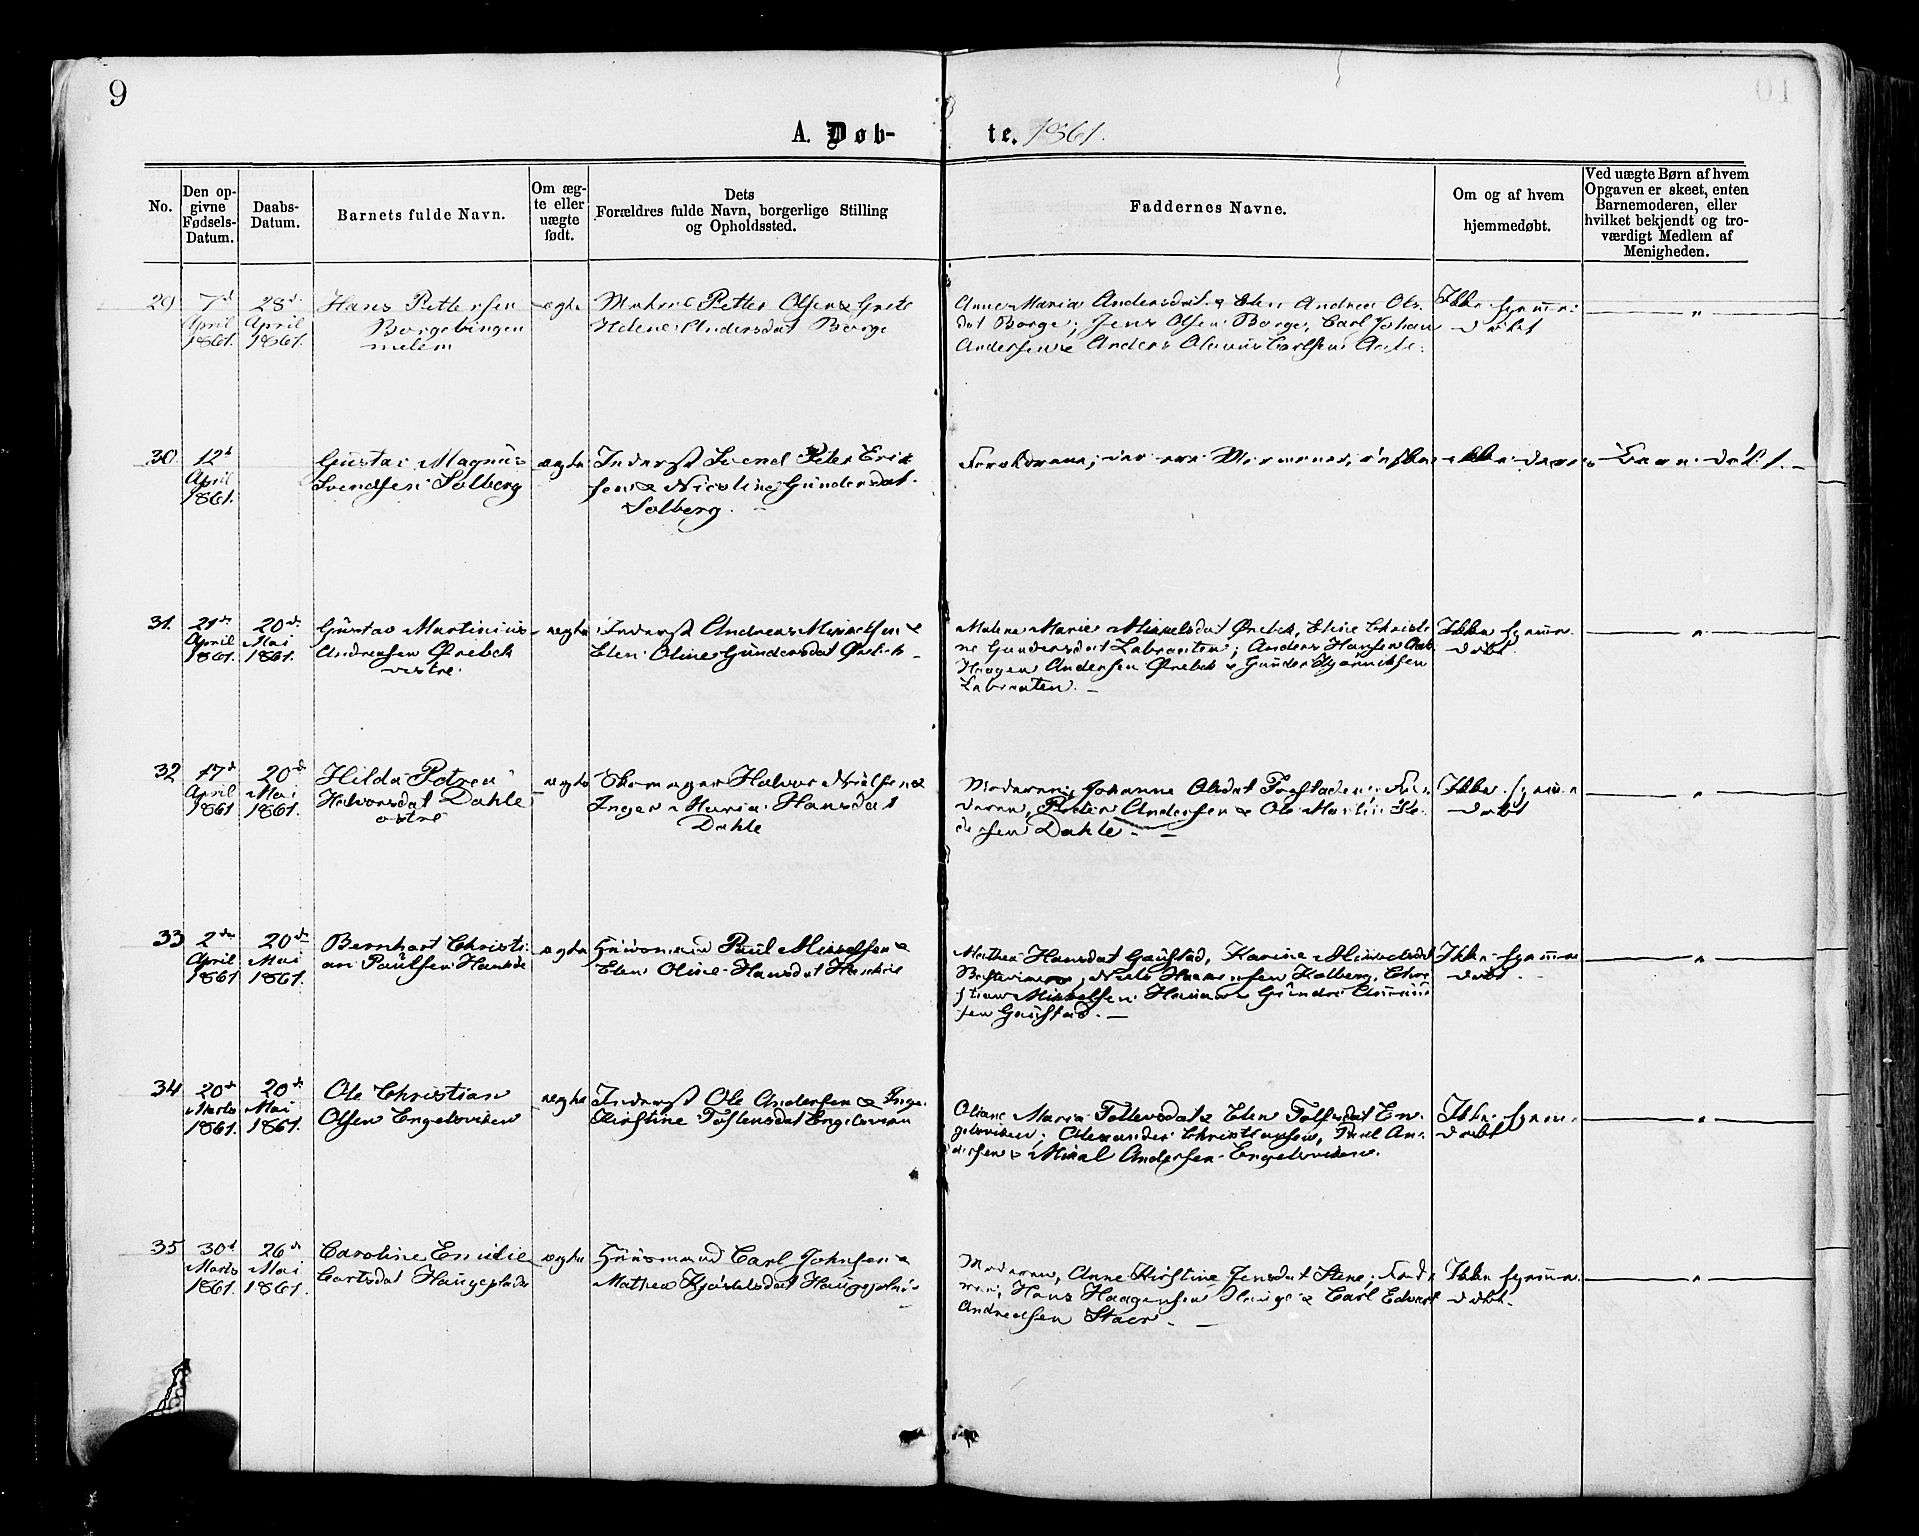 9
A. Døb-
te. 1861.
No.
Den op-
givne
Fødsels-
Datum.
Daabs-
Datum.
Barnets fulde Navn.
Om æg-
te eller
uægte
født.
Dets
Forældres fulde Navn, borgerlige Stilling
og Opholdssted.
Faddernes Navne.
Om og af hvem
hjemmedøbt.
Ved uægte Børn af hvem
Opgaven er skeet, enten
Barnemoderen, eller
hvilket bekjendt og tro-
værdigt Medlem af
Menigheden.
29
7d
April
1861.
28d
April
1861.
Hans Pettersen
Borge
melem
ægte
Petter Olsen & Grete
Helene Andersdat Borge
Anne Maria Andersdat & Elen Andrea Ols
dat Borge; Jens Olsen Borge, Carl Johan
Andersen & Anders Olaves Carlsen
Ikke hjemme
døbt
"
30
12d
April
1861.
Gustav Magnus
Svendsen Solberg
ægte
Inderst Svend Peter Erik
sen & Nicoline Gundersdat
Solberg.
Forældrene, der ere Mormoner, ikke
Barn døbt.
31.
21de
April
1861.
20de
Mai
1861.
Gustav Martinius
Andresen Ørebek
vestre.
ægte
Inderst Andreas Mikkelsen &
Elen Oline Gundersdat Ørebek
Malene Marie Mikkelsdat Ørebek, Christi
ne Gundersdat Labraaten; Anders Hansen
Haagen Andersen Ørebek & Gunder
Labraaten.
Ikke hjemme
døbt.
"
32
17d
April
1861
20de
Mai
1861.
Hilda Petrea
Halvorsdat Dahle
østre
ægte
Skomager Halvor Nielsen &
Inger Maria Hansdat
Dahle
Moderen, Johanne Olsdat Fa
deren, Peder Andersen & Ole Martin Pe
dersen Dahle.
Ikke hjemme
døbt
"
33
2den
April
1861
20de
Mai
1861.
Bernhart Christi
an Paulsen
ægte
Huusmand Paul Mikkelsen &
Elen Oline Hansdat
Mathea Hansdat Gaustad, Karine Mikkelsdat
Niels Kolberg, Chri
stian Mikkelsen
sen Gaustad.
Ikke hjemme
døbt.
"
34
20de
Marts
1861.
20de
Mai
1861.
Ole Christian
Olsen Engelsviken
ægte
Inderst Ole Andersen & Inge
Kirstine Engelsviken
Oliane Maria & Elen En
gelsviken; Alexander Christiansen, Paul An
dersen & Andersen Engelsviken.
Ikke hjem
døbt
"
35
30d
Marts
1861.
26de
Mai
1861.
Caroline Emilie
Carlsdat Haugeplads
ægte
Huusmand Carl Johnsen &
Mathea
Moderen, Anne Kirstine Jensdat Stene; Fade
ren, Hans Haagensen Hauge & Carl Edvart
Andreasen
Ikke hjemme
døbt.
"